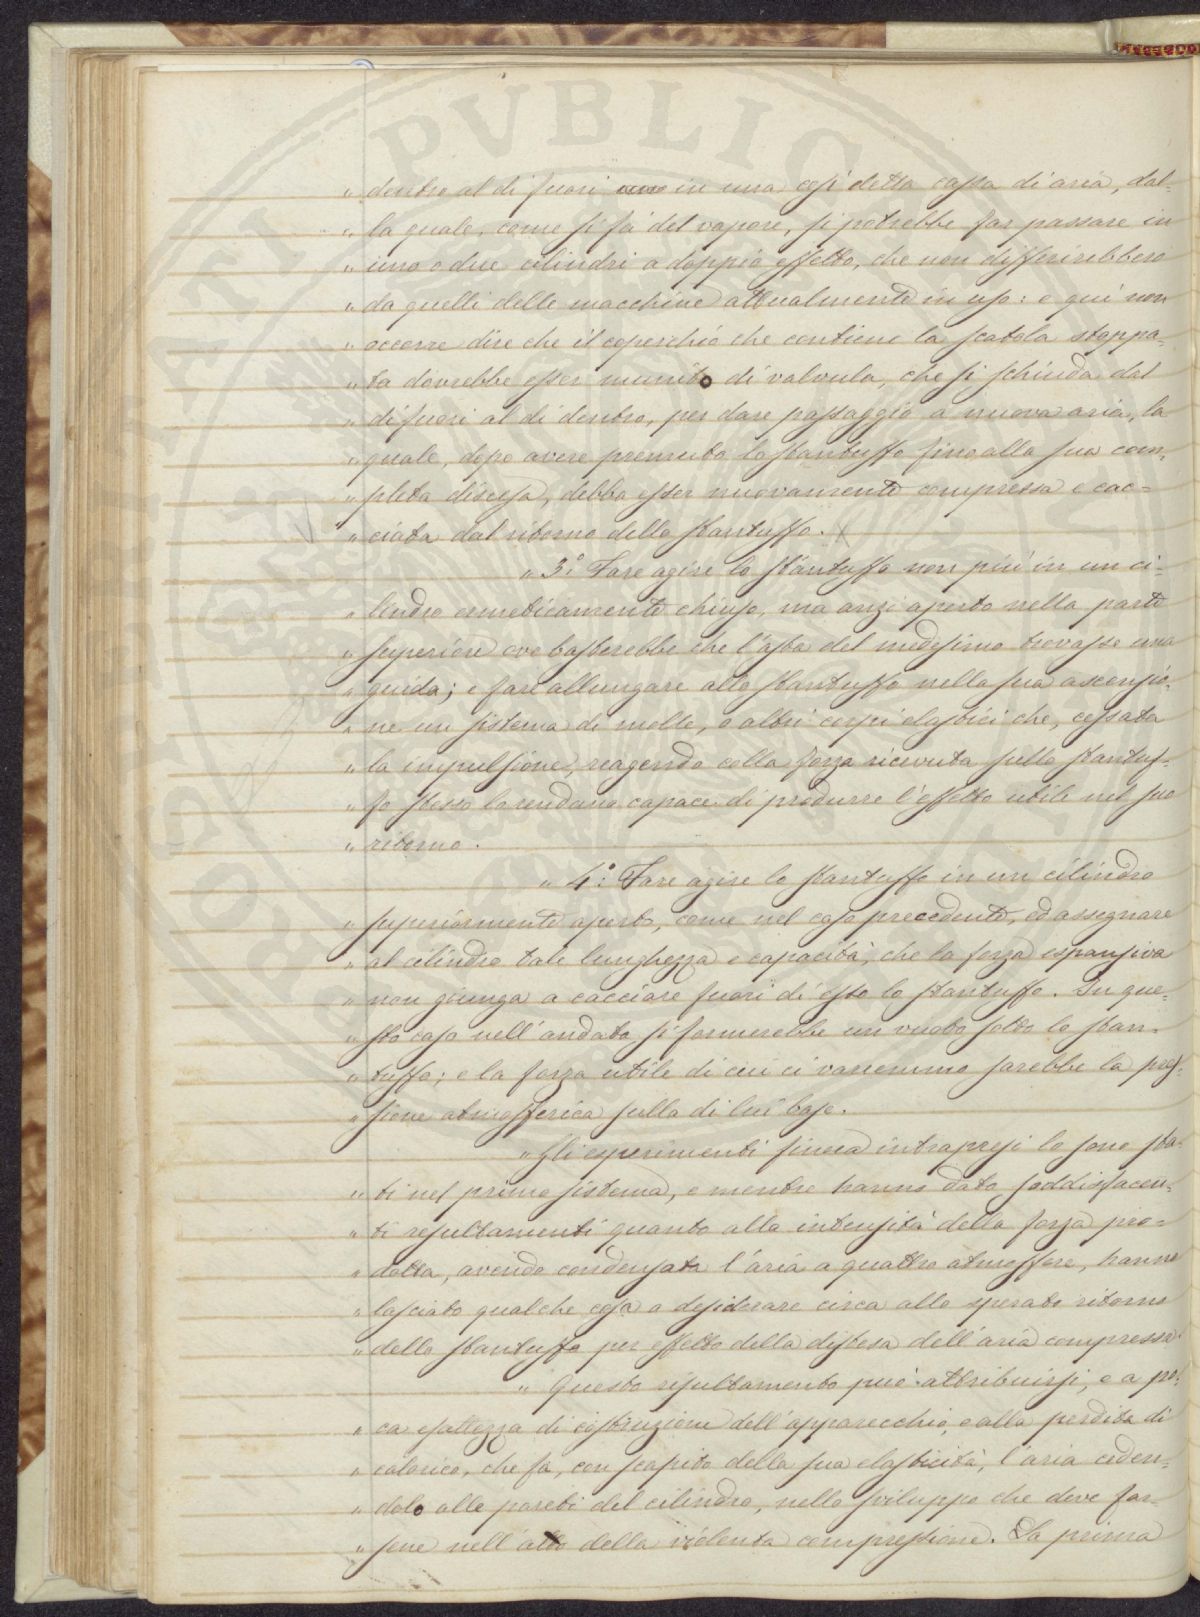 PVBLIC
„ dentro al di fuori in una così detta cassa di aria, dal-
„ la quale, come si fà del vapore, si potrebbe far passare in
„ uno o due cilindri a doppio effetto, che non differirebbero
„ da quelli delle macchine attualmente in uso: e quì non
„ occorre dire che il coperchio che contiene la scatola stoppa-
„ ta dovrebbe esser munito di valvula, che si schiuda dal
„ di fuori al di dentro, per dare passaggio a nuova aria, la
„ quale, dopo avere premuto lo stantuffo fino alla sua com-
„ pleta discesa, debba esser nuovamente compressa e cac-
„ ciata dal ritorno dello stantuffo.
„ 3.° Fare agire lo stantuffo non più in un ci-
„ lindro ermeticamente chiuso, ma anzi aperto nella parte
„ superiore ove basterebbe che l'asta del medesimo trovasse una
„ guida; e fare allungare allo stantuffo nella sua ascensio-
„ ne un sistema di molle, o altri corpi elastici che, cessata
„ la impulsione, reagendo colla forza ricevuta sullo stantuf-
„ fo stesso lo rendano capace di produrre l'effetto utile nel suo
„ ritorno.
„ 4.° Fare agire lo stantuffo in un cilindro
„ superiormente aperto, come nel caso precedente, ed assegnare
„ al cilindro tale lunghezza e capacità, che la forza espansiva
„ non giunga a cacciare fuori di esso lo stantuffo. In que-
„ sto caso nell'andata si formerebbe un vuoto sotto lo stan-
„ tuffo; e la forza utile di cui ci varremmo sarebbe la pres-
„ sione atmosferica sulla di lui base.
„ Gli esperimenti finora intrapresi lo sono sta-
„ ti nel primo sistema, e mentre hanno dato soddisfacen-
„ ti resultamenti quanto alla intensità della forza pro-
„ dotta, avendo condensata l'aria a quattro atmosfere, hanno
„ lasciato qualche cosa a desiderare circa allo sperato ritorno
„ dello stantuffo per effetto della distesa dell'aria compressa.
„ Questo resultamento può attribuirsi, e a po-
„ ca esattezza di costruzione dell'apparecchio, e alla perdita di
„ calorico, che fa, con scapito della sua elasticità, l'aria ceden-
„ dolo alle pareti del cilindro, nello sviluppo che deve far-
„ sene nell'atto della violenta compressione. La prima